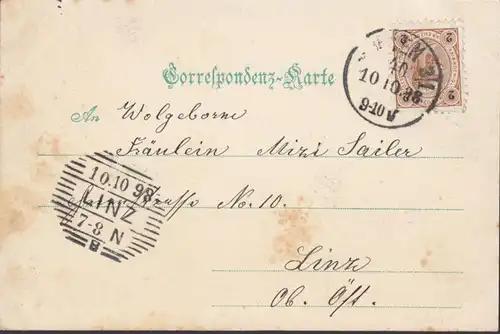 Correspondenz-Karte
An Wolgeborne
Fräulein Mizi Sailer
No. 10.
Linz
Ob. Öst.
10.10.98
9-10 V
2
2
10.10 98
LINZ
7-8 N